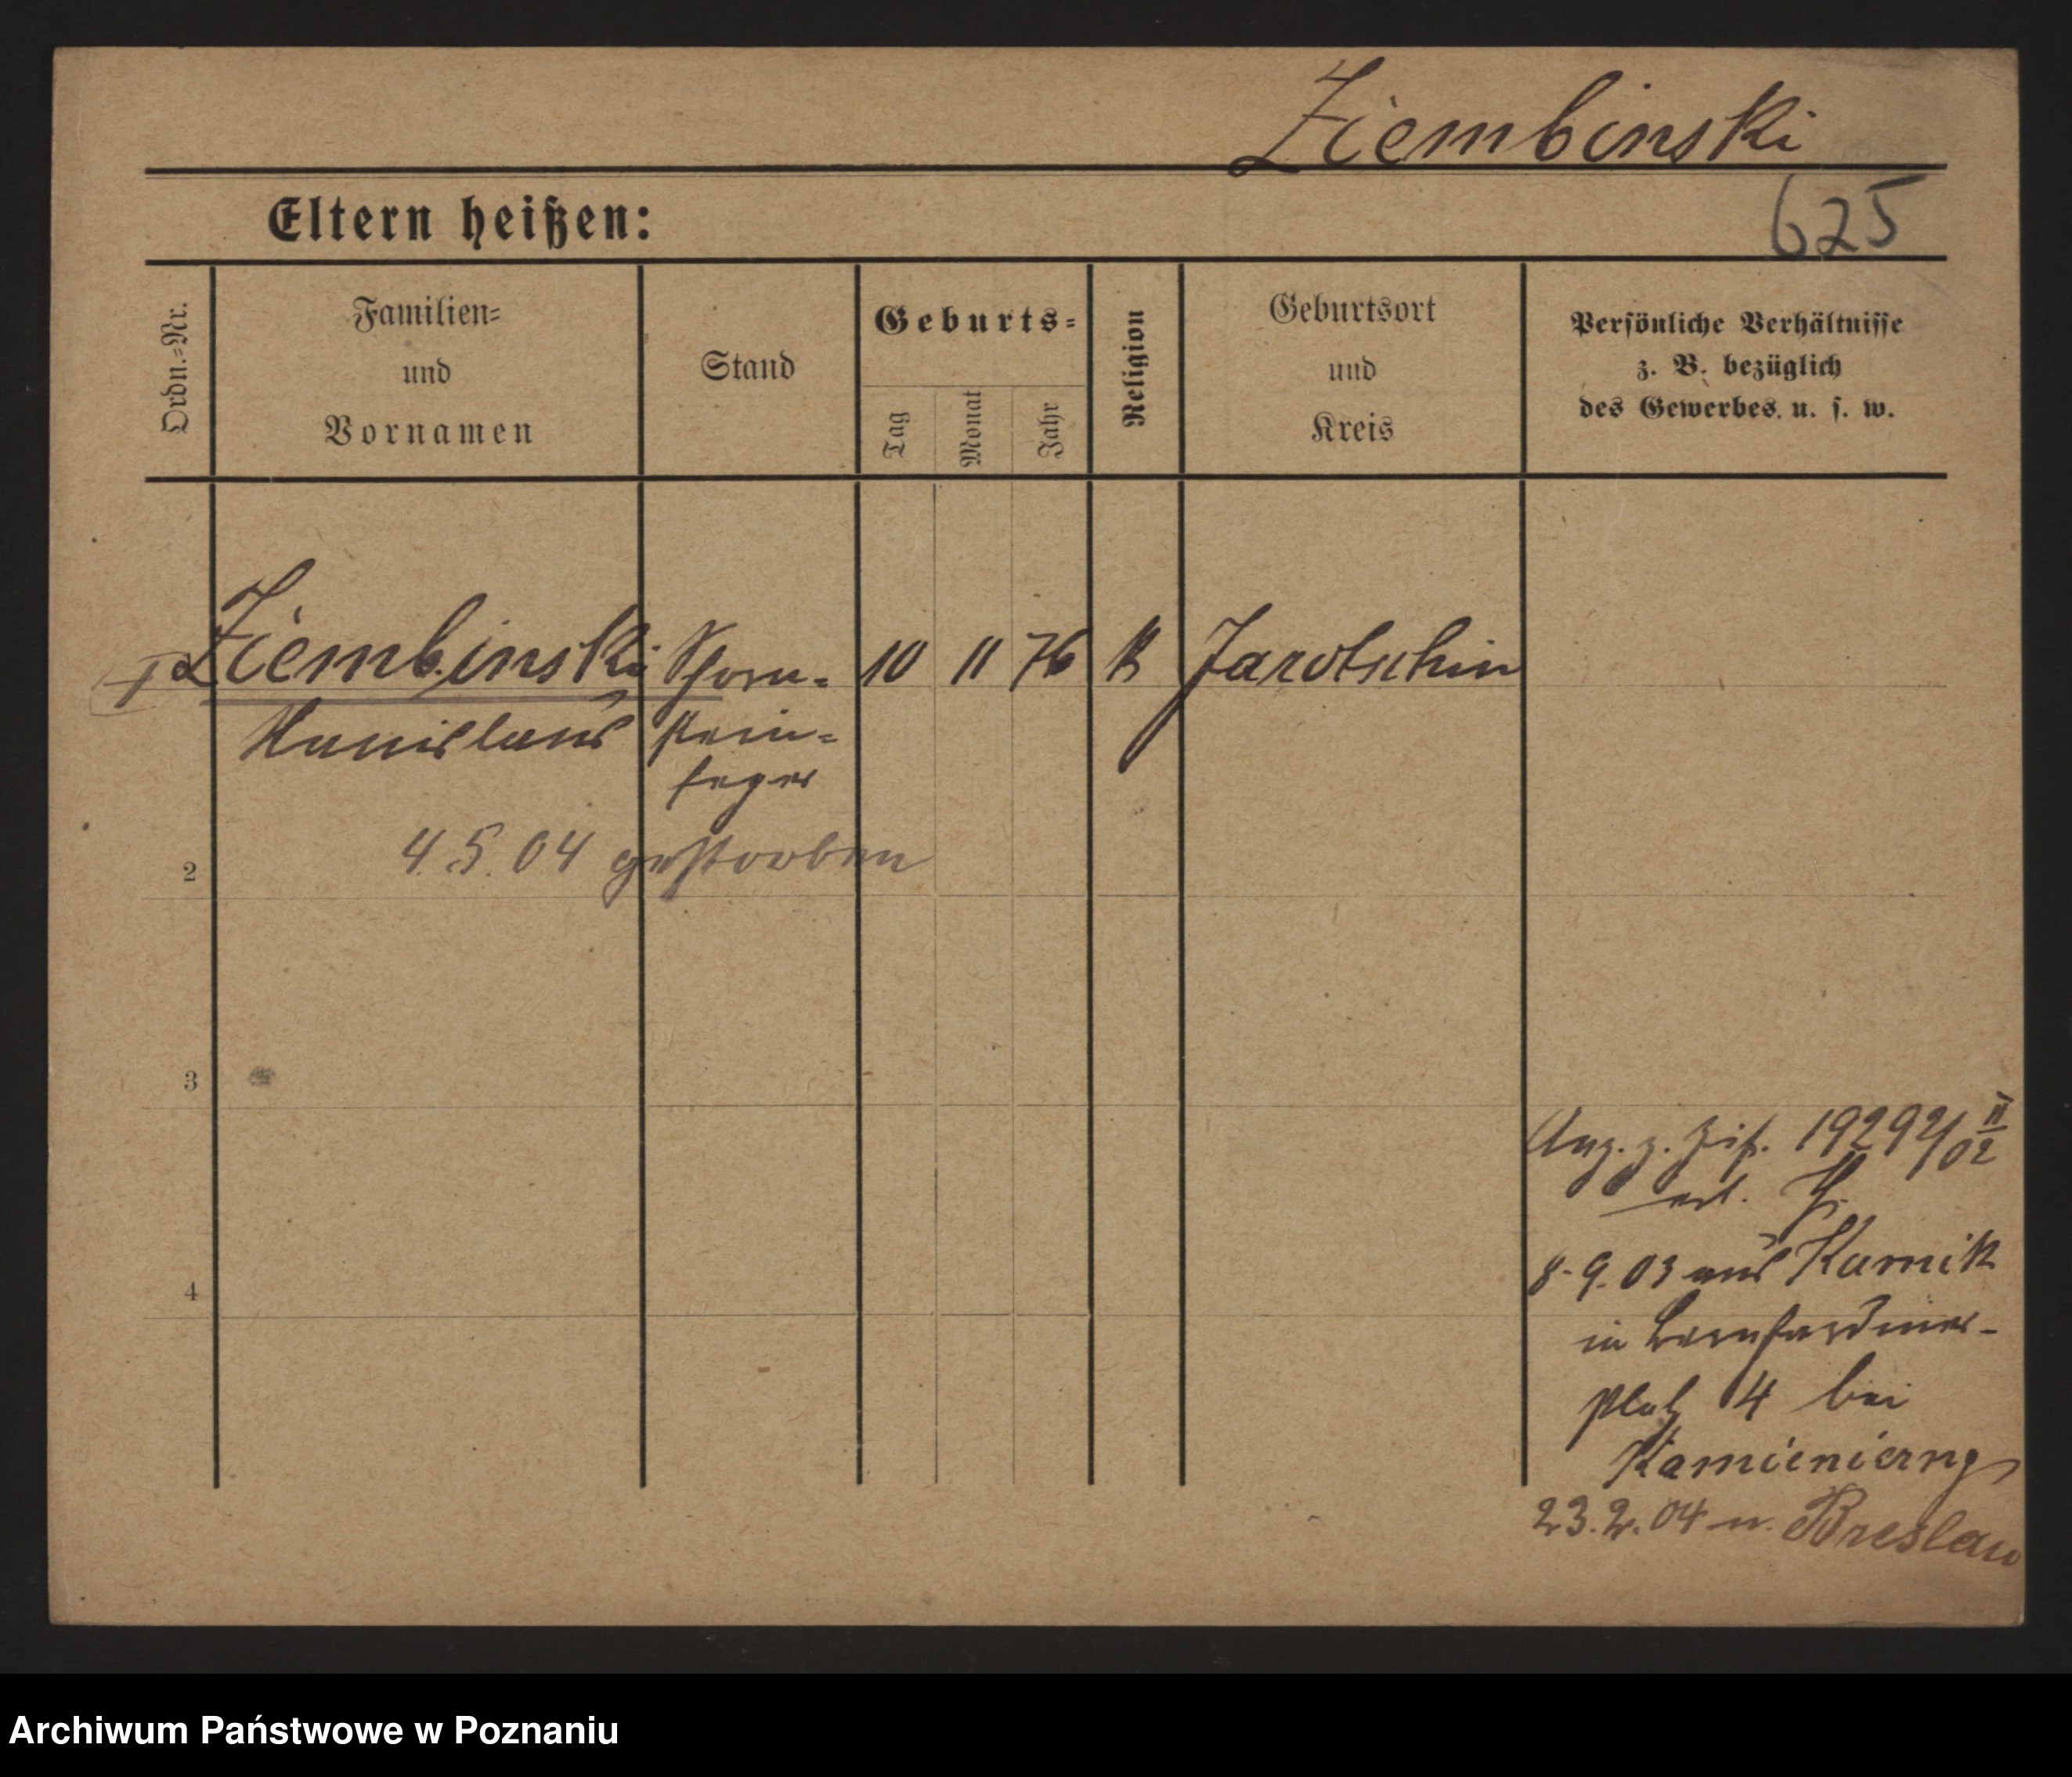 Ziembinski
Eltern heißen:
625
Ordn.=Nr.
Familien=
und
Vornamen
Stand
Geburts=
Tag
Monat
Jahr
Religion
Geburtsort
und
Kreis
Persönliche Verhältnisse
z. B. bezüglich
des Gewerbes u. s. w.
Ziembinski Schorn= 10 11 76 K Jarotschin
Stanislaus stein=
feger
2
4.5.04 gestorben
3
4
19292/02
8.9.03 aus Kurnik
in Bernhardiner-
platz 4 bei
23.2.04 n. Breslau
Archiwum Państwowe w Poznaniu